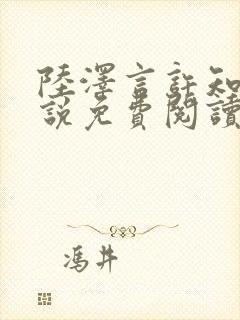 陸澤言許知
說免費閱讀
馮井